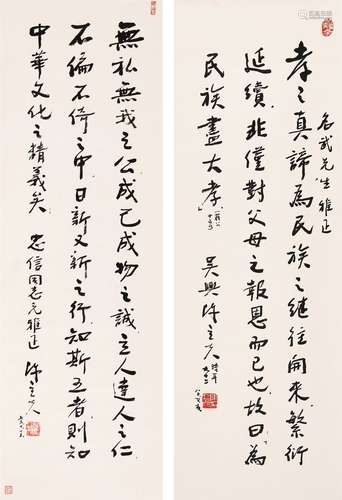 名武先生雅正
孝之真諦為民族之繼往開來繁衍
延續非僅對父母之報恩而已也故曰為
民族盡大孝」
吳興陳立夫時年九十二
無私無我之公成己成物之誠立人達人之仁
不偏不倚之中日新又新之行知斯五者則知
中華文化之精義矣
忠信同志兄雅正 陳立夫